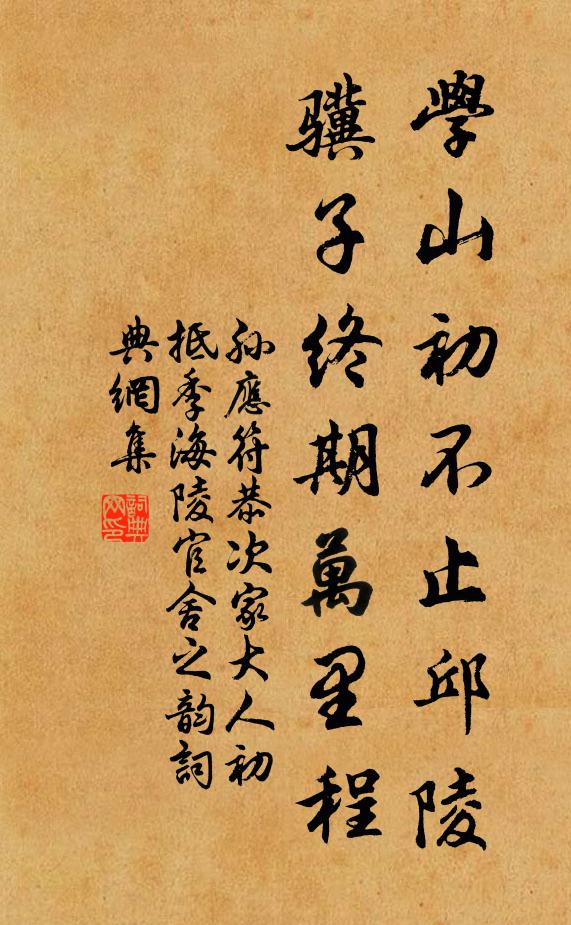 學山初不止邱陵
驥子終期萬里程
孫應符恭次家大人初
抵季海陵官舍之韵詞
典網集
詞典
網印